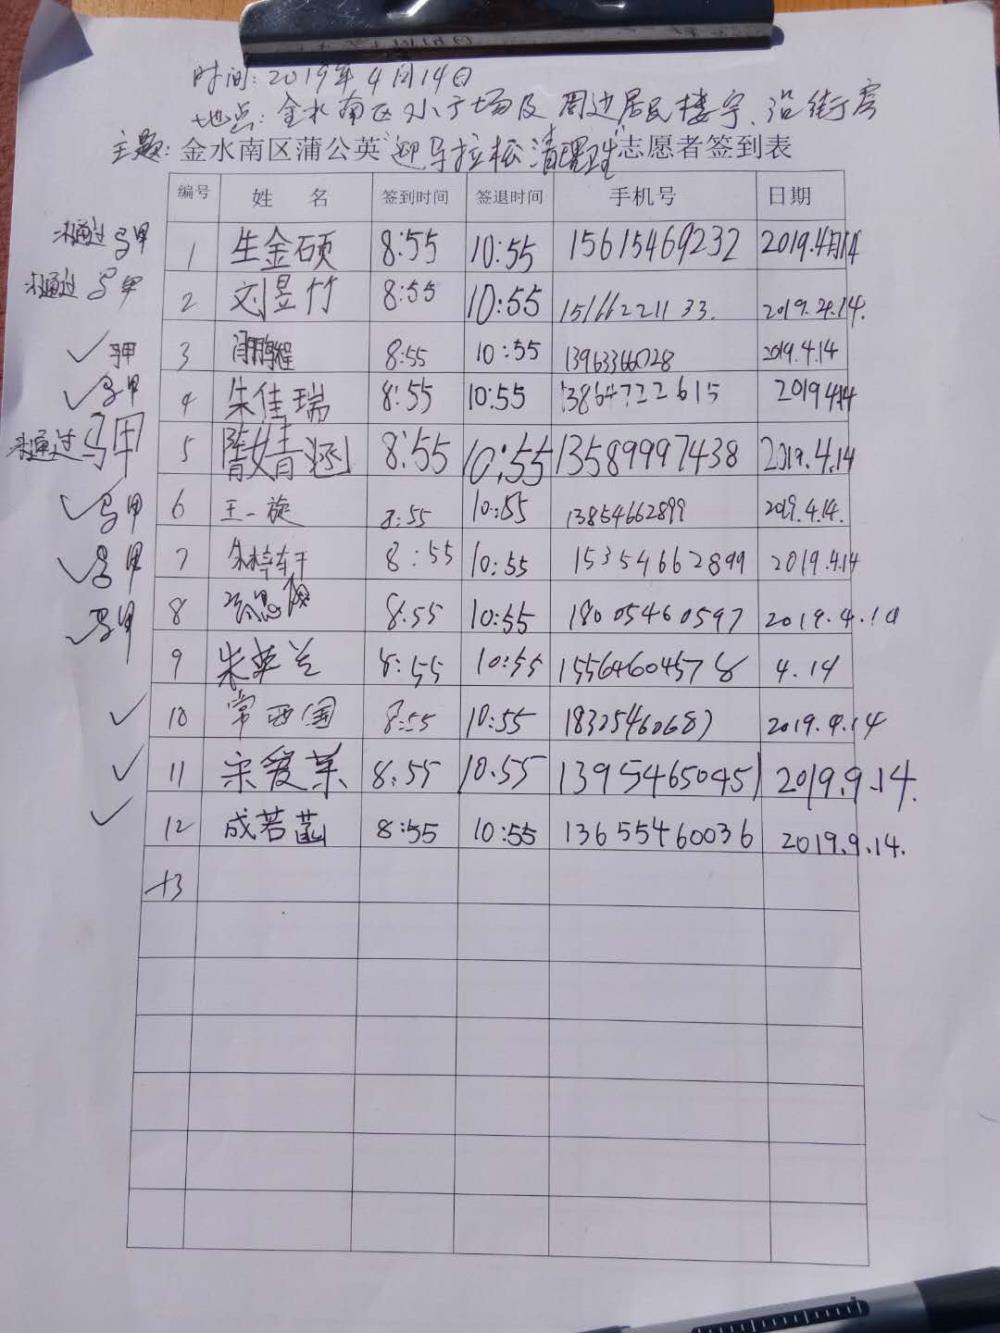 时间：2019年4月14日
地点：金水南区小广场及周边居民楼宇、沿街房
主题：金水南区蒲公英"迎马拉松清理卫生"志愿者签到表
编号 姓 名 签到时间 签退时间 手机号 日期
未通过 马甲 1 生金硕 8:55 10:55 15615469232 2019.4月14
未通过 马甲 2 刘昱竹 8:55 10:55 15166221133. 2019.4.14.
✓马甲 3 8:55 10:55 13963366028 2019.4.14
✓马甲 4 朱佳瑞 8:55 10:55 13864722615 2019414
未通过 马甲 5 隋婧涵 8:55 10:55 13589997438 2019.4.14
✓马甲 6 王一旋 8:55 10:55 13854662899 2019.4.14.
✓马甲 7 8:55 10:55 15354662899 2019.4.14
✓马甲 8 8:55 10:55 18005460597 2019.4.14
9 朱英兰 8:55 10:55 15564604578 4.14
✓ 10 常西国 8:55 10:55 18325460687 2019.4.14
✓ 11 宋爱英 8:55 10.55 13954650451 2019.9.14.
✓ 12 成若菡 8:55 10:55 13655460036 2019.9.14.
13